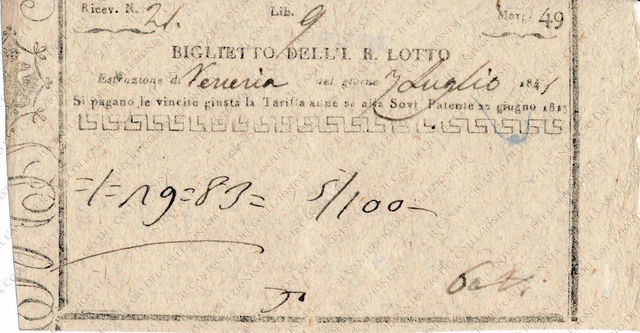 Ricev. N. 21. Lib. 9 Mat. 49
BIGLIETTO DELL'I. R. LOTTO
Estrazione di Venezia nel giorno 7 Luglio 184
Si pagano le vincite giusta la Tariffa annessa alla Sovr. Patente 22 giugno 181
=1=19=83= 5/100-